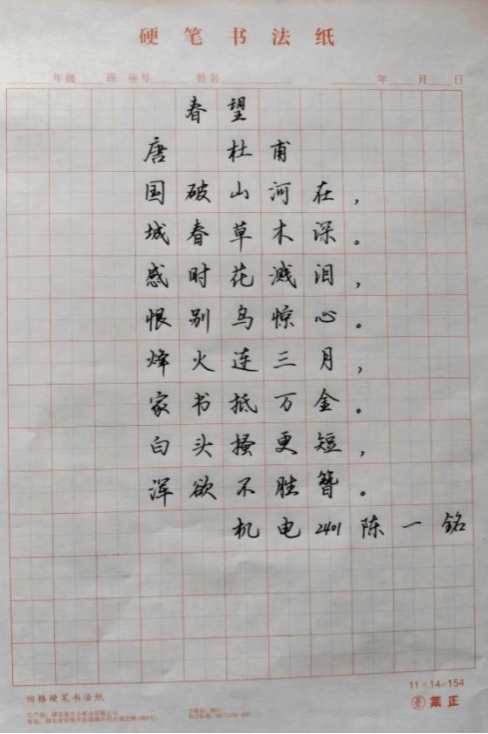 硬笔书法纸
年级 班 座号 姓名 年 月 日
春望
唐 杜甫
国破山河在，
城春草木深。
感时花溅泪，
恨别鸟惊心。
烽火连三月，
家书抵万金。
白头搔更短，
浑欲不胜簪。
机电2401陈一铭
田格硬笔书法纸
11×14=154
集正